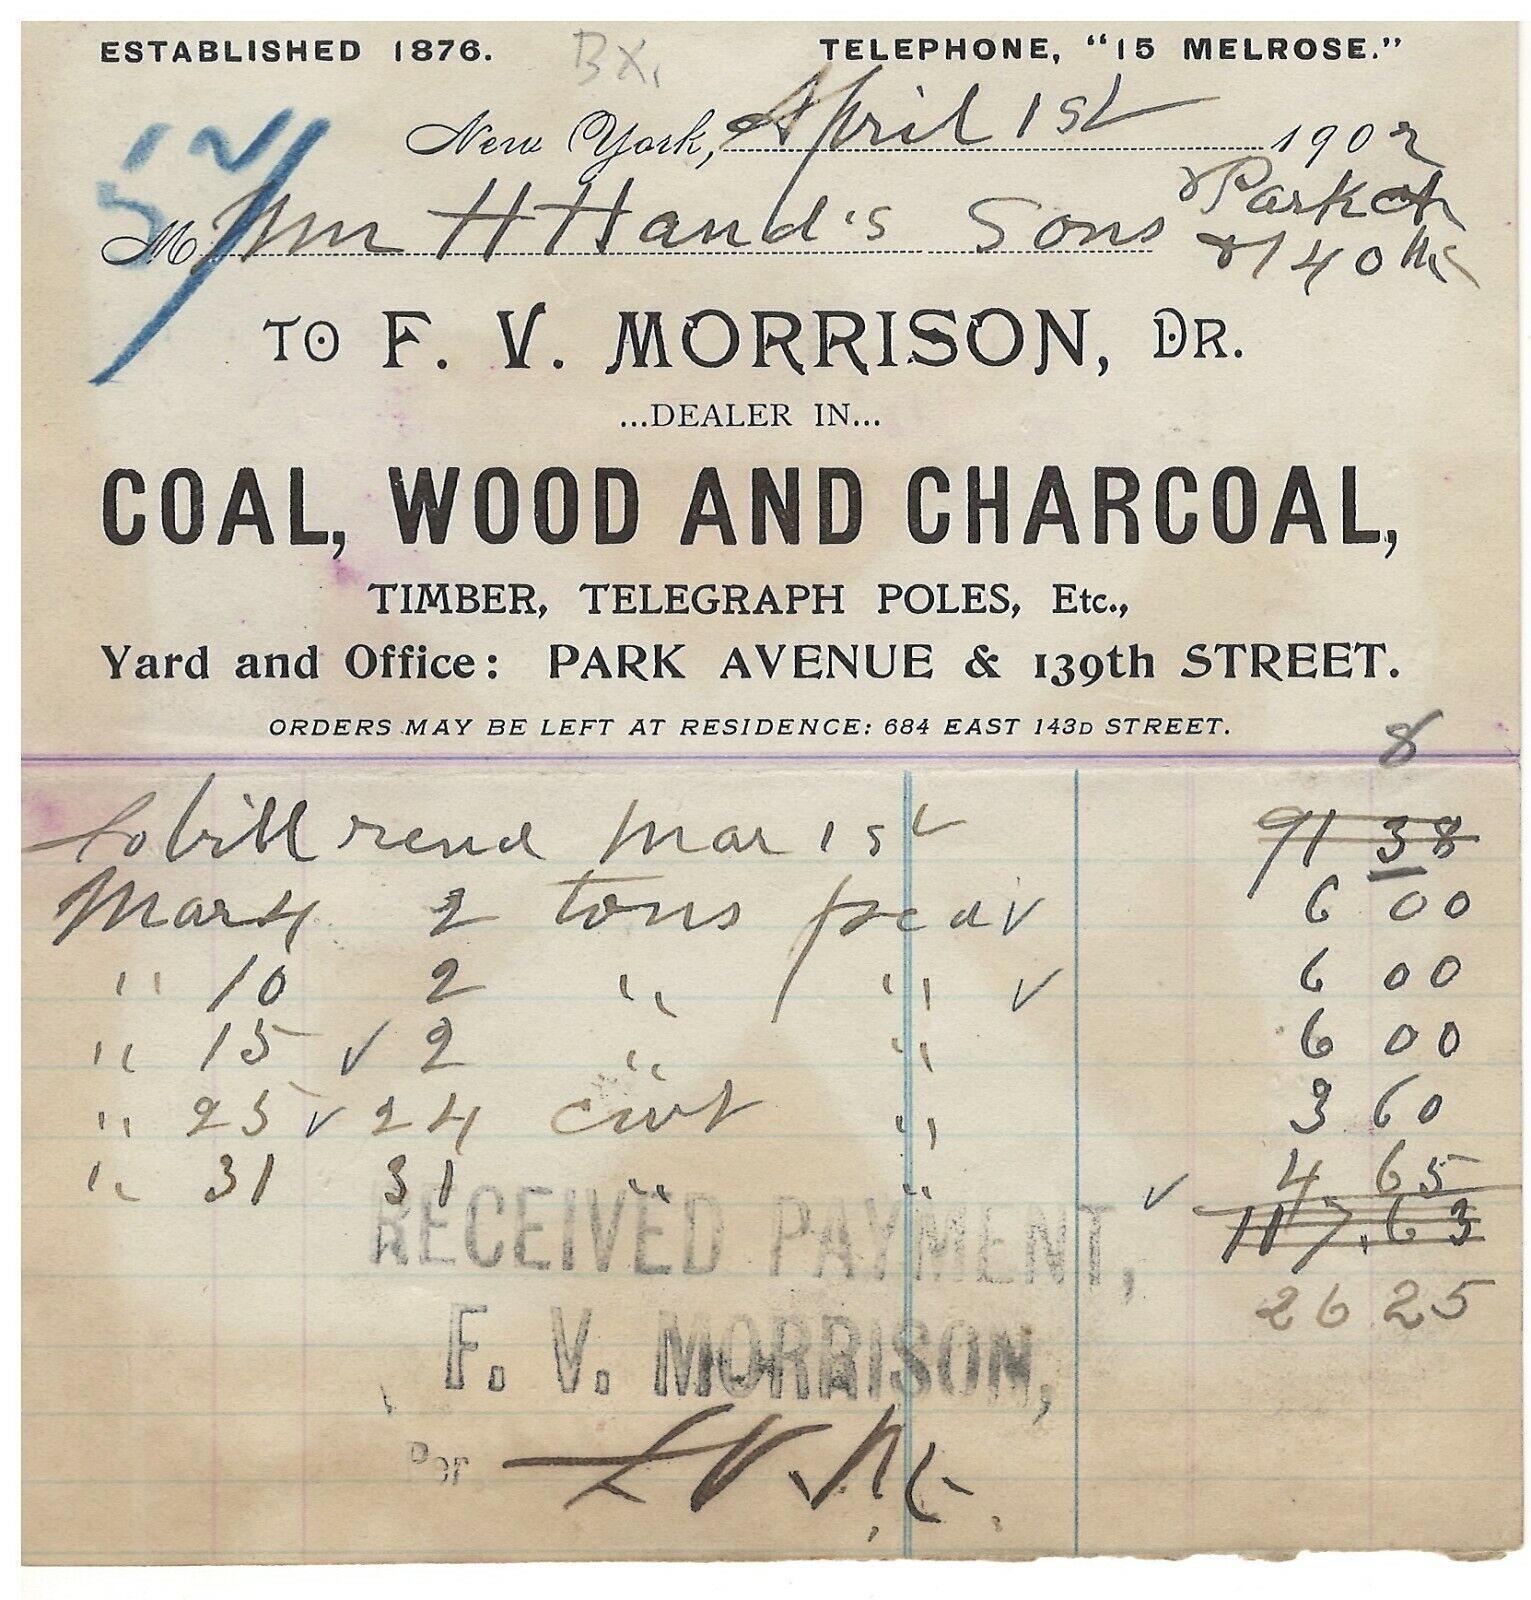 ESTABLISHED 1876. Bx. TELEPHONE, "15 MELROSE."
527
New York, April 1st 1902
M Wm H Hand's Sons
Park
& 140
TO F. V. MORRISON, DR.
...DEALER IN...
COAL, WOOD AND CHARCOAL,
TIMBER, TELEGRAPH POLES, Etc.,
Yard and Office: PARK AVENUE & 139th STREET.
ORDERS MAY BE LEFT AT RESIDENCE: 684 EAST 143D STREET.
8
to bill rend Mar 1st 91 38
Mar 4 2 tons pea ✓ 6 00
" 10 2 " " ✓ 6 00
" 15 ✓ 2 " " 6 00
" 25 ✓ 24 cwt " 3 60
" 31 31 " " ✓ 4 65
117.63
26 25
RECEIVED PAYMENT,
F. V. MORRISON,
Per